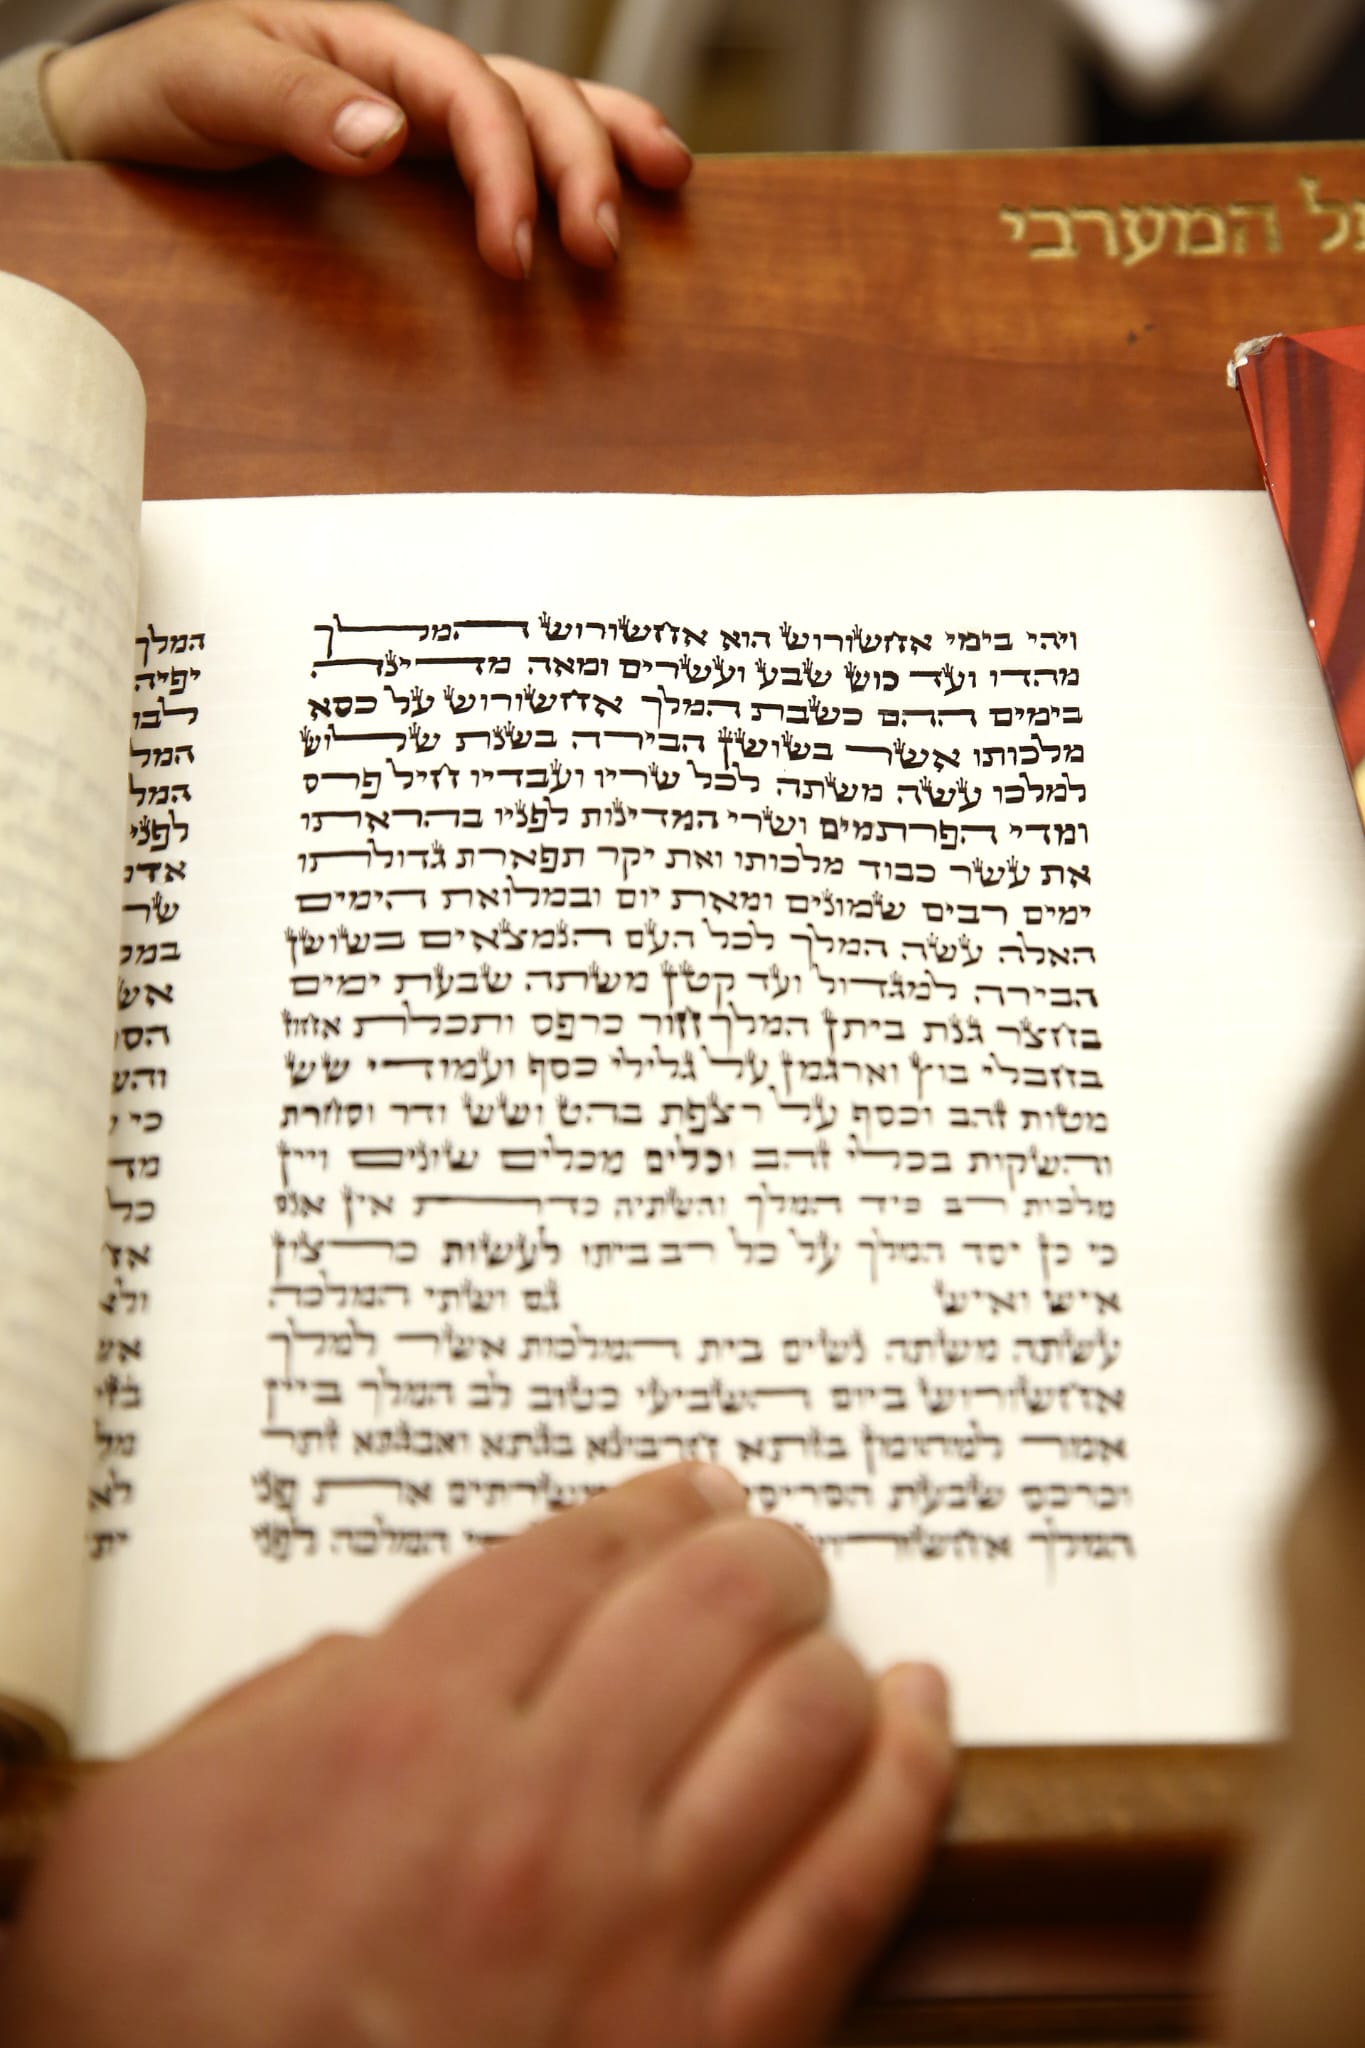 המערבי
ויהי בימי אחשורוש הוא אחשורוש המלך
מהדו ועד כוש שבע ועשרים ומאה מדינה
בימים ההם כשבת המלך אחשורוש על כסא
מלכותו אשר בשושן הבירה בשנת שלוש
למלכו עשה משתה לכל שריו ועבדיו חיל פרס
ומדי הפרתמים ושרי המדינות לפניו בהראתו
את עשר כבוד מלכותו ואת יקר תפארת גדולתו
ימים רבים שמונים ומאת יום ובמלואת הימים
האלה עשה המלך לכל העם הנמצאים בשושן
הבירה למגדול ועד קטן משתה שבעת ימים
בחצר גנת ביתן המלך חור כרפס ותכלת אחוז
בחבלי בוץ וארגמן על גלילי כסף ועמודי שש
מטות זהב וכסף על רצפת בהט ושש ודר וסחרת
והשקות בכלי זהב וכלים מכלים שונים ויין
מלכות רב כיד המלך והשתיה כדת אין אנס
כי כן יסד המלך על כל רב ביתו לעשות כרצון
איש ואיש גם ושתי המלכה
עשתה משתה נשים בית המלכות אשר למלך
אחשורוש ביום השביעי כטוב לב המלך ביין
אמר למהומן בזתא חרבונא בגתא ואבגתא זתר
וכרכס שבעת הסריסים משרתים את פני
המלך אחשורוש המלכה לפני
המלך
יפיה
לבו
המל
המל
לפני
שר
אש
כי
מד
כל
ולא
לא